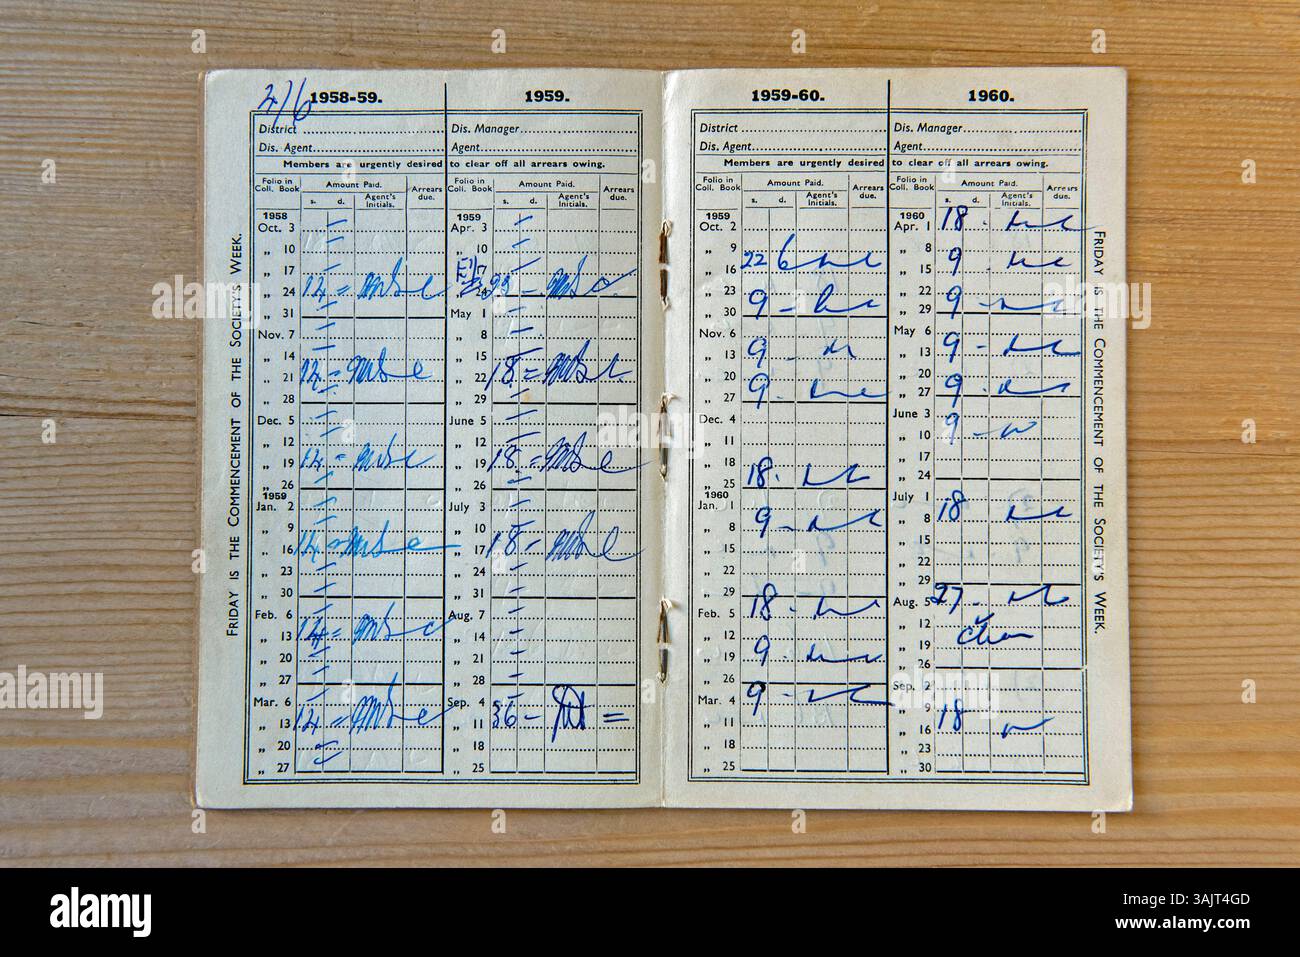 2/6 1958-59. 1959.
District Dis. Manager
Dis. Agent Agent
Members are urgently desired to clear off all arrears owing.
Folio in Coll. Book Amount Paid. Arrears due. Folio in Coll. Book Amount Paid. Arrears due.
s. d. Agent's Initials. s. d. Agent's Initials.
1958 1959
Oct. 3 Apr. 3
„ 10 „ 10
„ 17 „ 17
„ 24 12 = „ 24 -
„ 31 May 1
Nov. 7 „ 8
„ 14 „ 15
„ 21 12 = „ 22 18 =
„ 28 „ 29
Dec. 5 June 5
„ 12 „ 12
„ 19 12 = „ 19 18 =
„ 26 „ 26
1959
Jan. 2 July 3
„ 9 „ 10
„ 16 12 „ 17 18 =
„ 23 „ 24
„ 30 „ 31
Feb. 6 Aug. 7
„ 13 12 = „ 14
„ 20 „ 21
„ 27 „ 28
Mar. 6 Sep. 4
„ 13 12 = „ 11 36 -
„ 20 „ 18
„ 27 „ 25
FRIDAY IS THE COMMENCEMENT OF THE SOCIETY'S WEEK.
1959-60. 1960.
District Dis. Manager
Dis. Agent Agent
Members are urgently desired to clear off all arrears owing.
Folio in Coll. Book Amount Paid. Arrears due. Folio in Coll. Book Amount Paid. Arrears due.
s. d. Agent's Initials. s. d. Agent's Initials.
1959 1960
Oct. 2 Apr. 1 18 -
„ 9 „ 8
„ 16 22 6 „ 15 9
„ 23 „ 22
„ 30 9 - „ 29 9 -
Nov. 6 May 6
„ 13 9 - „ 13 9 -
„ 20 „ 20
„ 27 9 - „ 27 9 -
Dec. 4 June 3
„ 11 „ 10 9 -
„ 18 „ 17
„ 25 18 - „ 24
1960
Jan. 1 July 1
„ 8 9 - „ 8 18
„ 15 „ 15
„ 22 „ 22
„ 29 „ 29
Feb. 5 18 - Aug. 5 27 -
„ 12 „ 12
„ 19 9 „ 19
„ 26 „ 26
Mar. 4 9 - Sep. 2
„ 11 „ 9
„ 18 „ 16 18
„ 25 „ 23
„ 30
FRIDAY IS THE COMMENCEMENT OF THE SOCIETY'S WEEK.
alamy
Image ID: 3AJT4GD
www.alamy.com